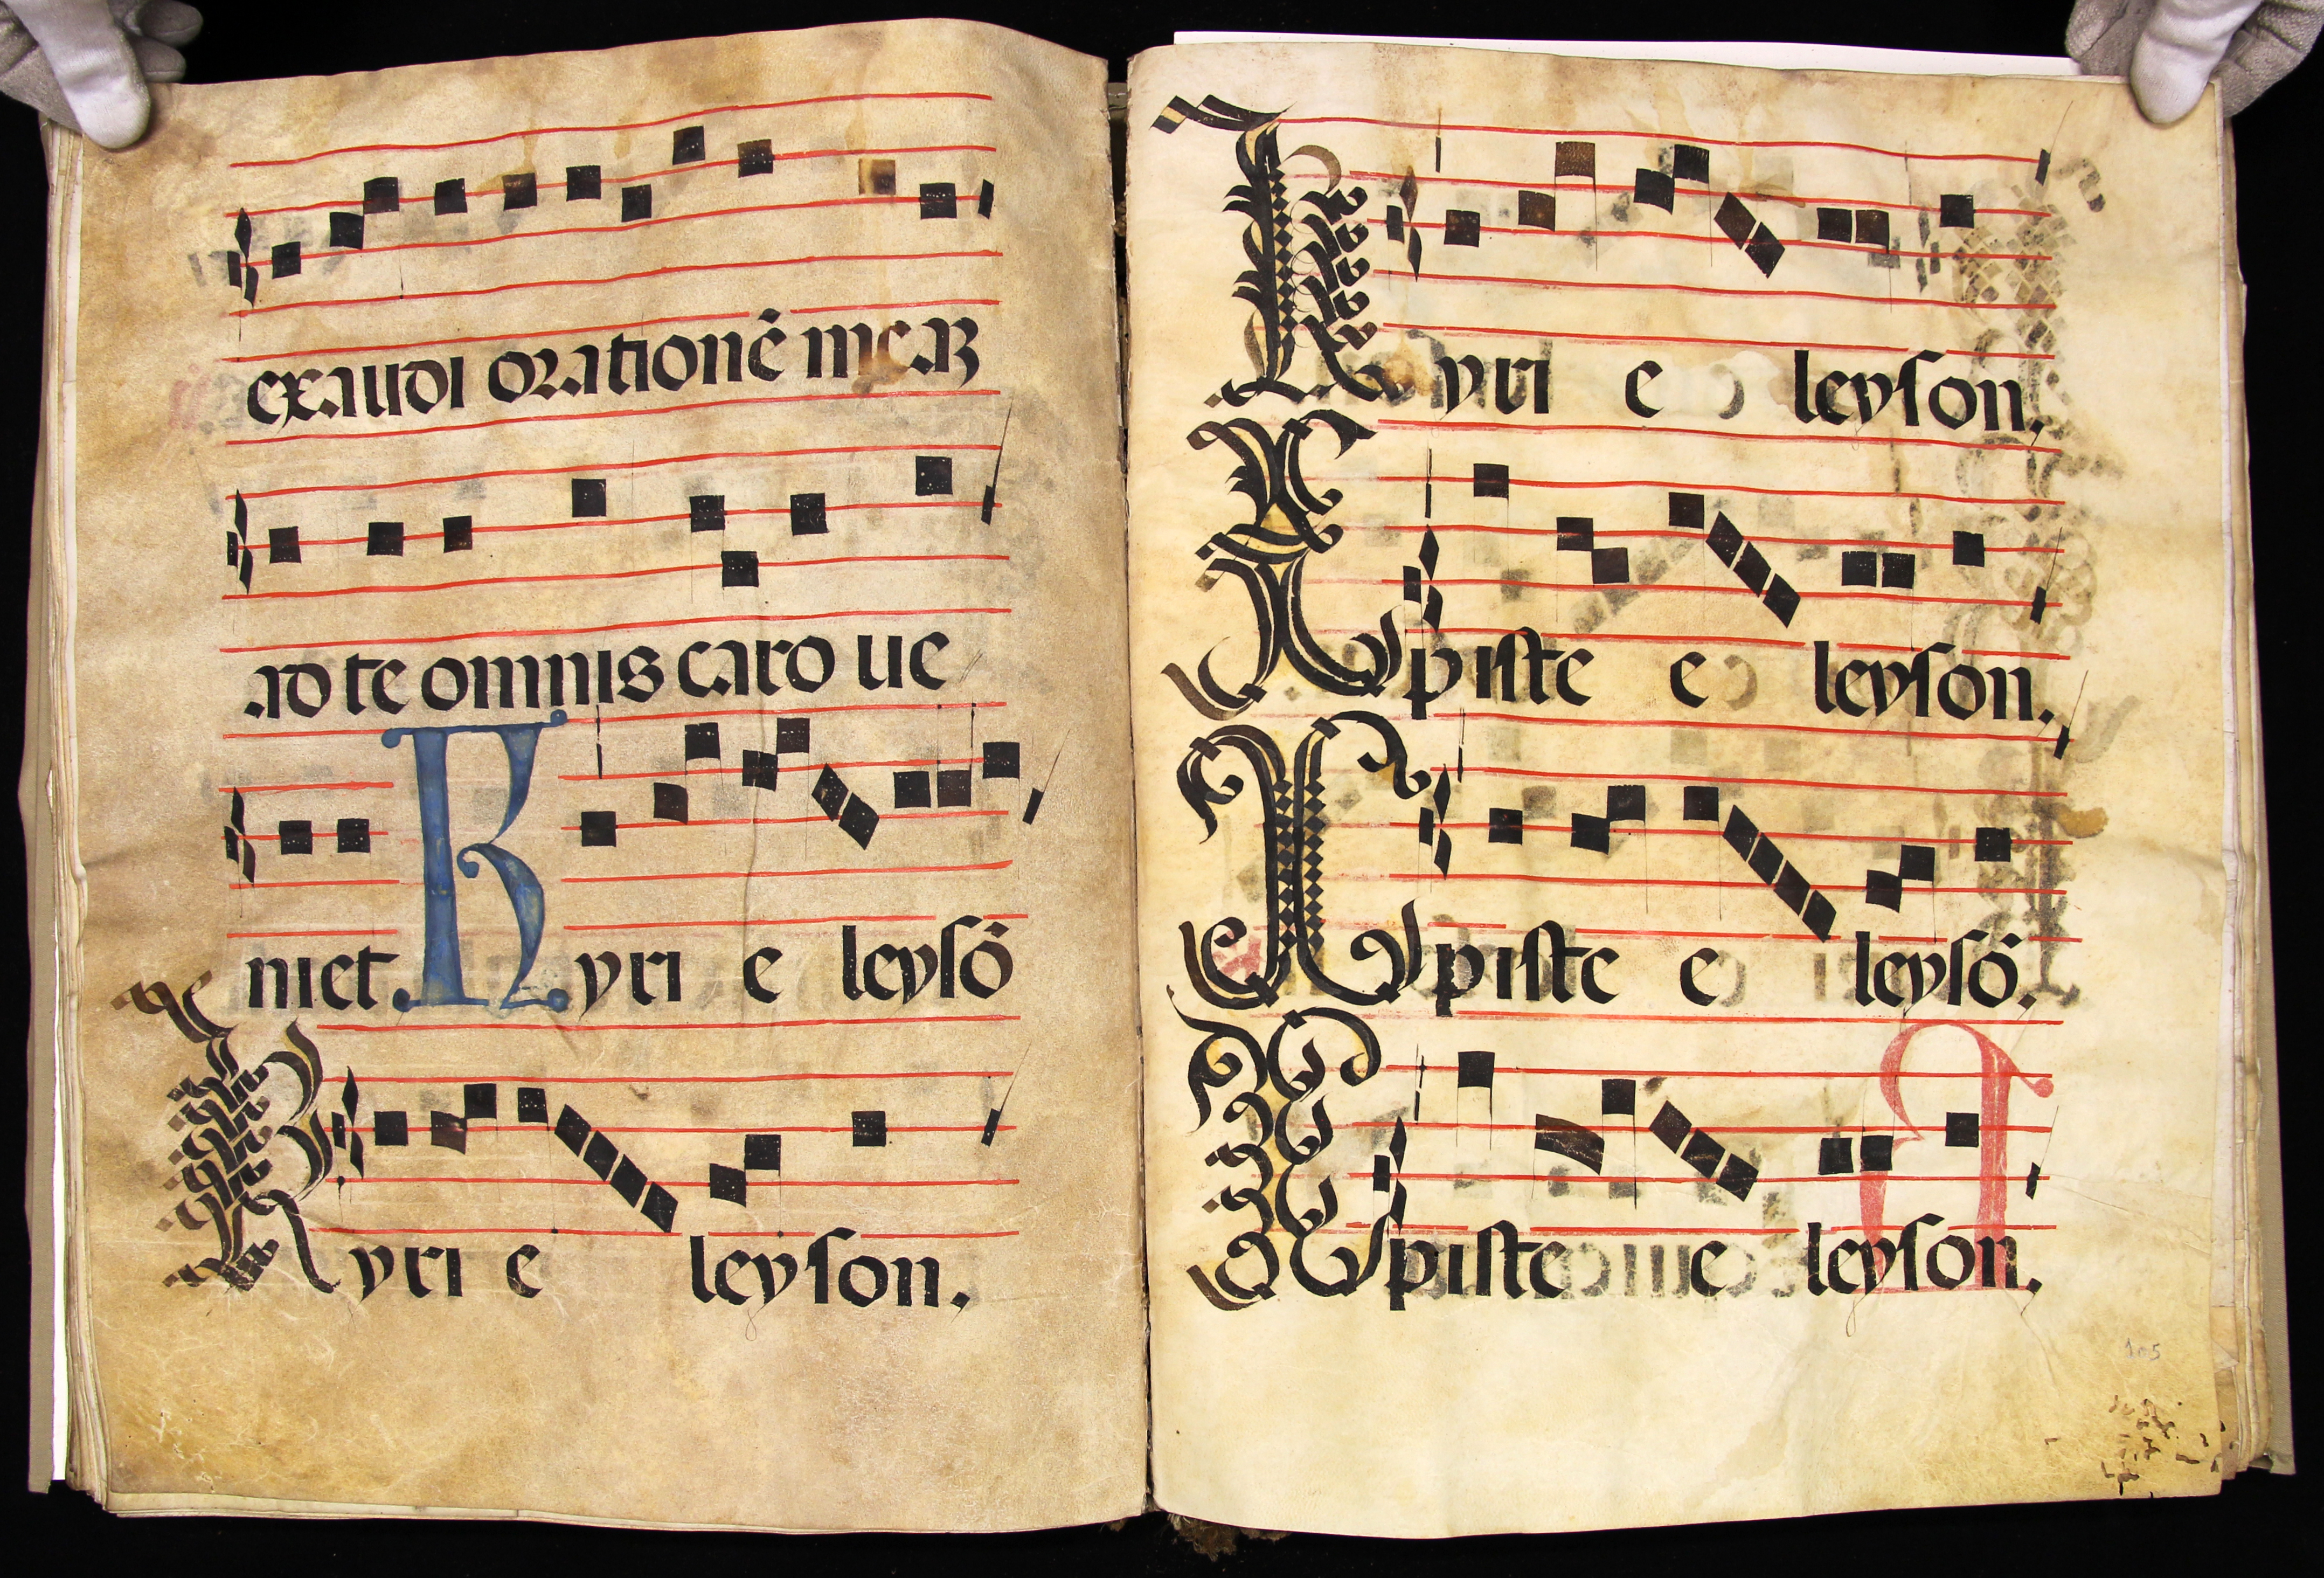 exaudi orationē meaꝫ
ad te omnis caro ue
niet. Kyri e leysō
Kyri e leyson.
Kyri e leyson.
Xpiste e leyson.
Xpiste e leysō.
Xpiste e leyson.
105